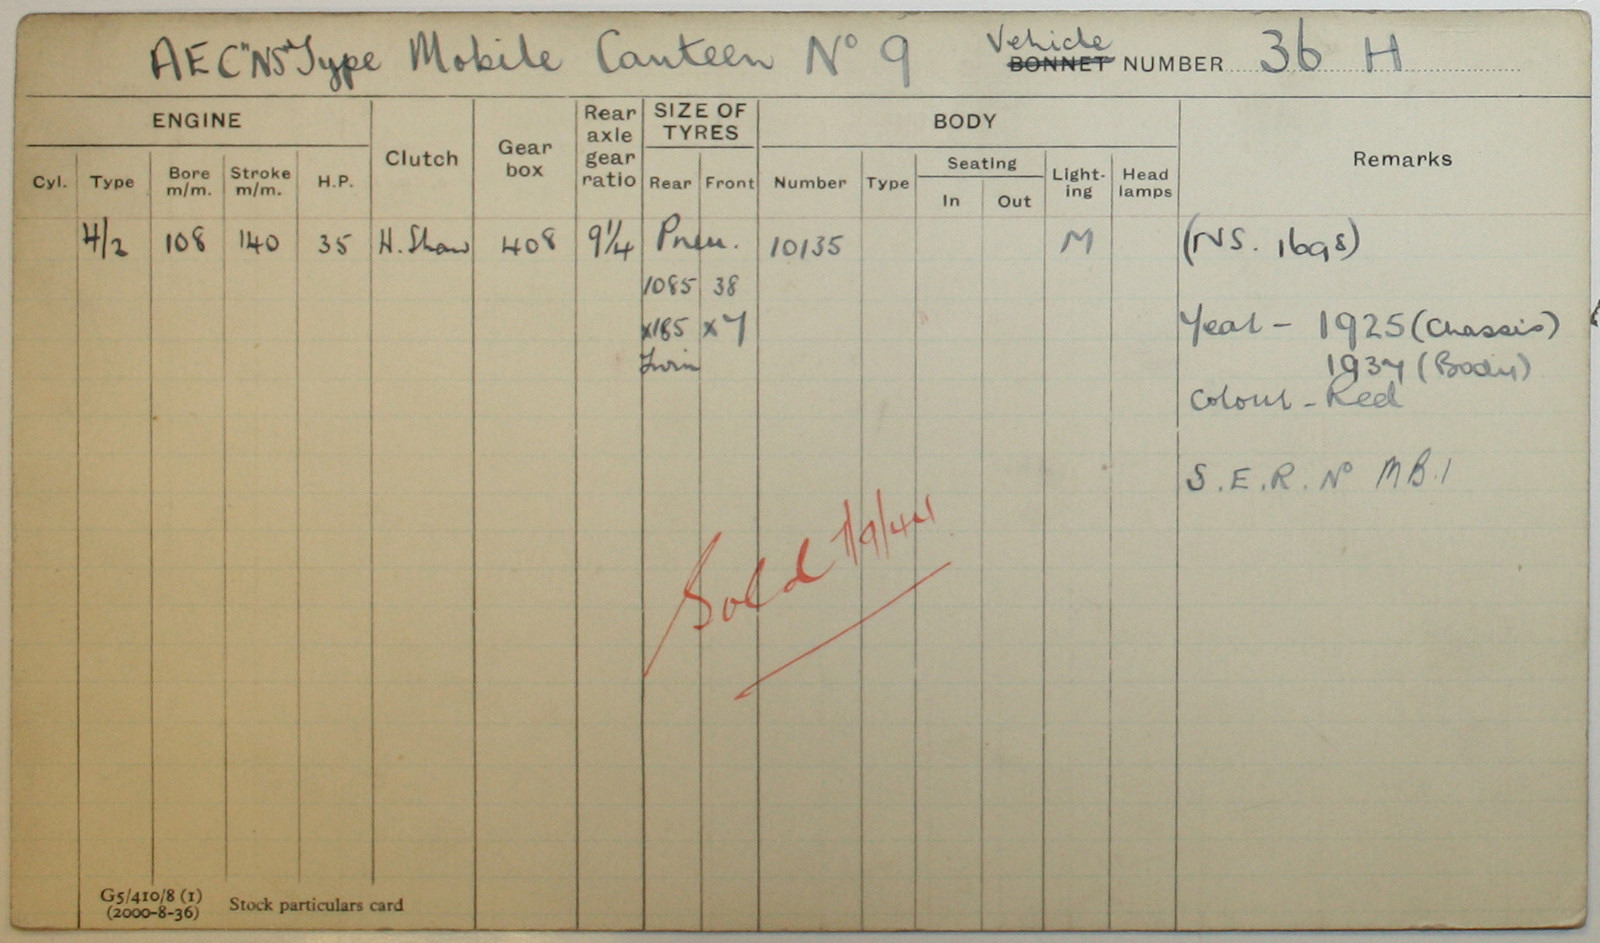 AEC "NS" Type Mobile Canteen Nº 9 Vehicle BONNET NUMBER 36 H
ENGINE
Cyl. Type Bore m/m. Stroke m/m. H.P.
Clutch
Gear box
Rear axle gear ratio
SIZE OF TYRES
Rear Front
BODY
Number Type Seating In Out Light-ing Head lamps
Remarks
4/2 108 140 35 H. Shaw 408 9¼ Pneu. 10135 M (NS. 1698)
1085 38
x185 x7 Year - 1925 (Chassis)
Twin 1937 (Body)
Colour - Red
S.E.R. Nº MB.1
Sold 1/9/44
G5/410/8 (1)
(2000-8-36) Stock particulars card